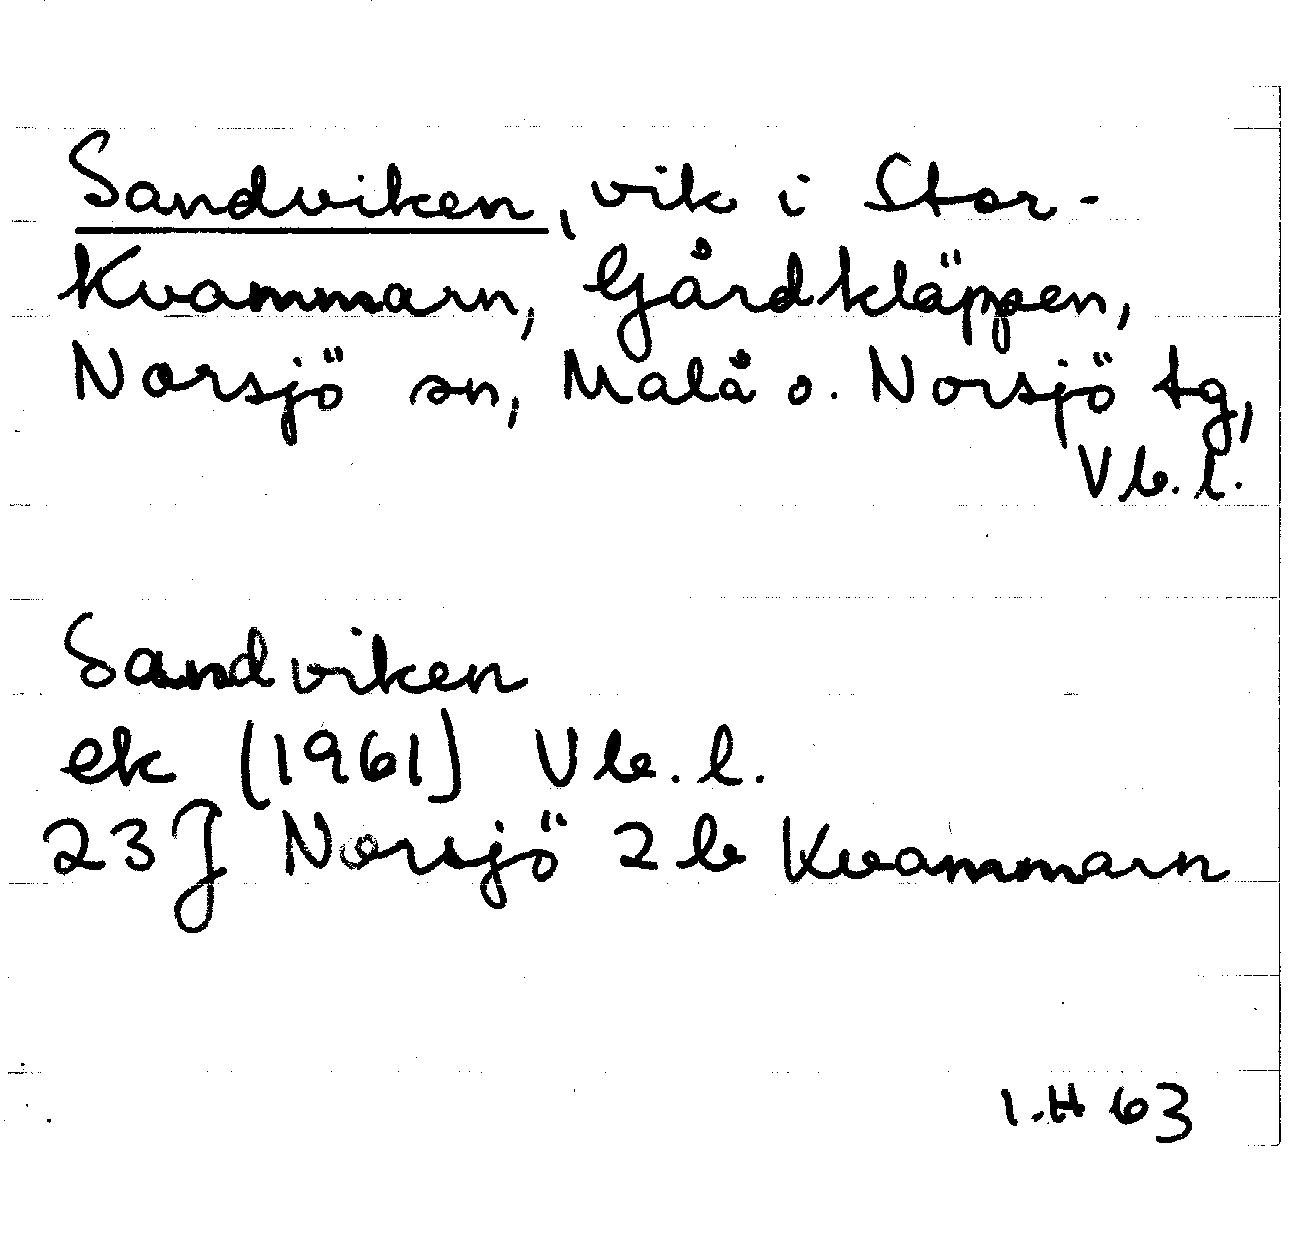 Sandviken, vik i Stor-
Kvammarn, Gårdkläppen,
Norsjö sn, Malå o. Norsjö tg,
Vb. l.
Sandviken
ek (1961) Vb. l.
23J Norsjö 2b Kvammarn
I.H 63